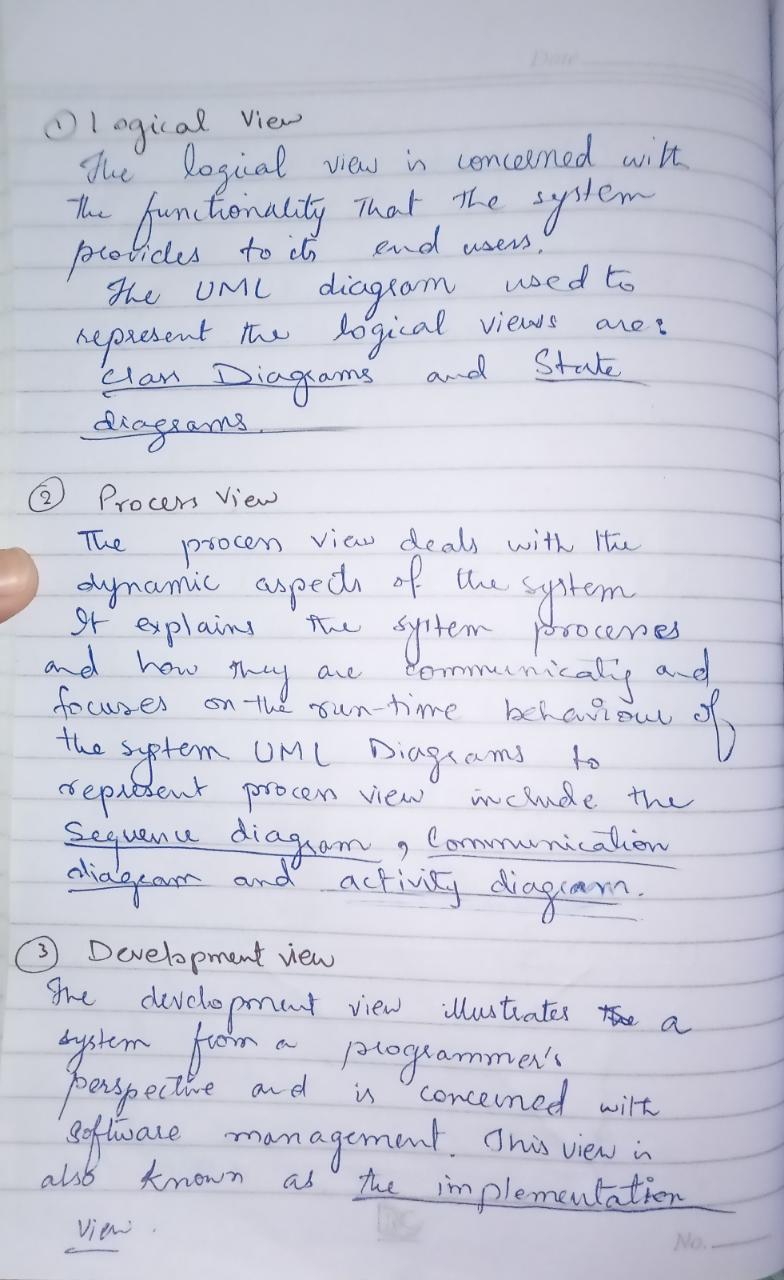 Date
① Logical View
The logical view is concerned with
the functionality that the system
provides to its end users.
The UML diagram used to
represent the logical views are:
Class Diagrams and State
diagrams.
② Process View
The process view deals with the
dynamic aspects of the system
It explains the system processes
and how they are communicatig and
focuses on the run-time behaviour of
the system UML Diagrams to
represent process view include the
Sequence diagram, Communication
diagram and activity diagram.
③ Development view
The development view illustrates a
system from a programmer's
perspective and is concerned with
software management. This view is
also known as the implementation
View.
No.